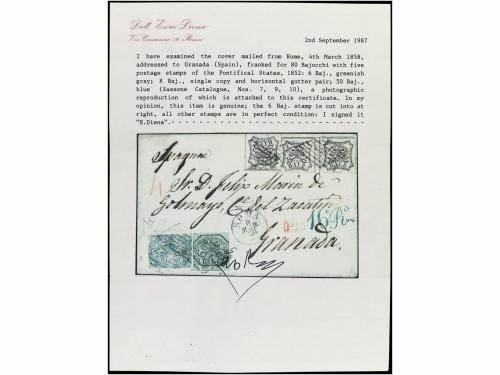 Dott. Enzo Diena
Via Crescenzio 19, Roma
2nd September 1987
I have examined the cover mailed from Rome, 4th March 1858,
addressed to Granada (Spain), franked for 80 Bajocchi with five
postage stamps of the Pontifical States, 1852: 6 Baj., greenish
gray; 8 Baj., single copy and horizontal gutter pair; 50 Baj.,
blue (Sassone Catalogue, Nos. 7, 9, 10), a photographic
reproduction of which is attached to this certificate. In my
opinion, this item is genuine; the 6 Baj. stamp is cut into at
right, all other stamps are in perfect condition: I signed it
"E.Diena".- - - - - - - - - - - - - - - - - - - - - - - - - - -
Spagna
Sr. D. Felix Marin de
Golmayo, Ce. del Zacatin
16 Rs
Granada.